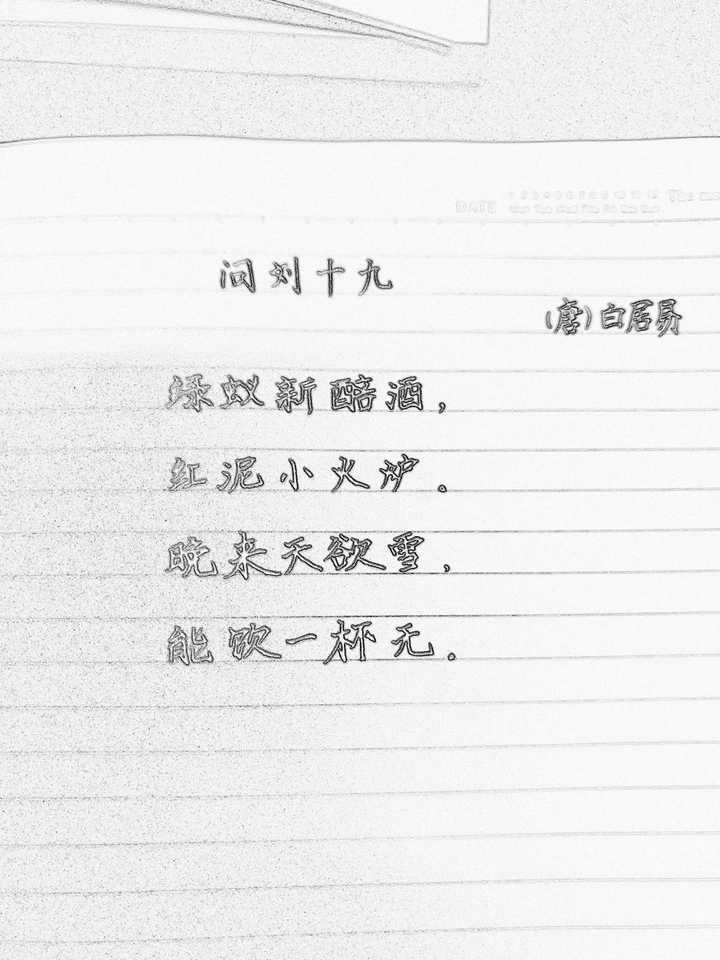 DATE
问刘十九
(唐)白居易
绿蚁新醅酒，
红泥小火炉。
晚来天欲雪，
能饮一杯无。